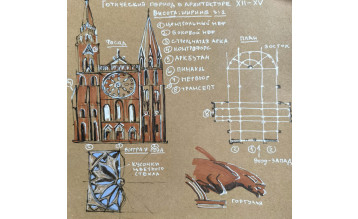 Готический период в архитектуре XII-XV
Высота:ширина 4:2
Фасад
① Центральный неф
② Боковой неф
③ Стрельчатая арка
④ Контрфорс
⑤ Аркбутан
⑥ Пинакль
⑦ Нервюр
⑧ Трансепт
План
восток
Витраж
- кусочки
цветного
стекла
вход-запад
Горгулья